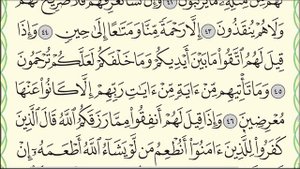 وَلَا هُمْ يُنقَذُونَ ٤٣ إِلَّا رَحْمَةً مِّنَّا وَمَتَٰعًا إِلَىٰ حِينٍ ٤٤ وَإِذَا
قِيلَ لَهُمُ ٱتَّقُوا۟ مَا بَيْنَ أَيْدِيكُمْ وَمَا خَلْفَكُمْ لَعَلَّكُمْ تُرْحَمُونَ
٤٥ وَمَا تَأْتِيهِم مِّنْ ءَايَةٍ مِّنْ ءَايَٰتِ رَبِّهِمْ إِلَّا كَانُوا۟ عَنْهَا
مُعْرِضِينَ ٤٦ وَإِذَا قِيلَ لَهُمْ أَنفِقُوا۟ مِمَّا رَزَقَكُمُ ٱللَّهُ قَالَ ٱلَّذِينَ
كَفَرُوا۟ لِلَّذِينَ ءَامَنُوٓا۟ أَنُطْعِمُ مَن لَّوْ يَشَآءُ ٱللَّهُ أَطْعَمَهُۥٓ إِنْ